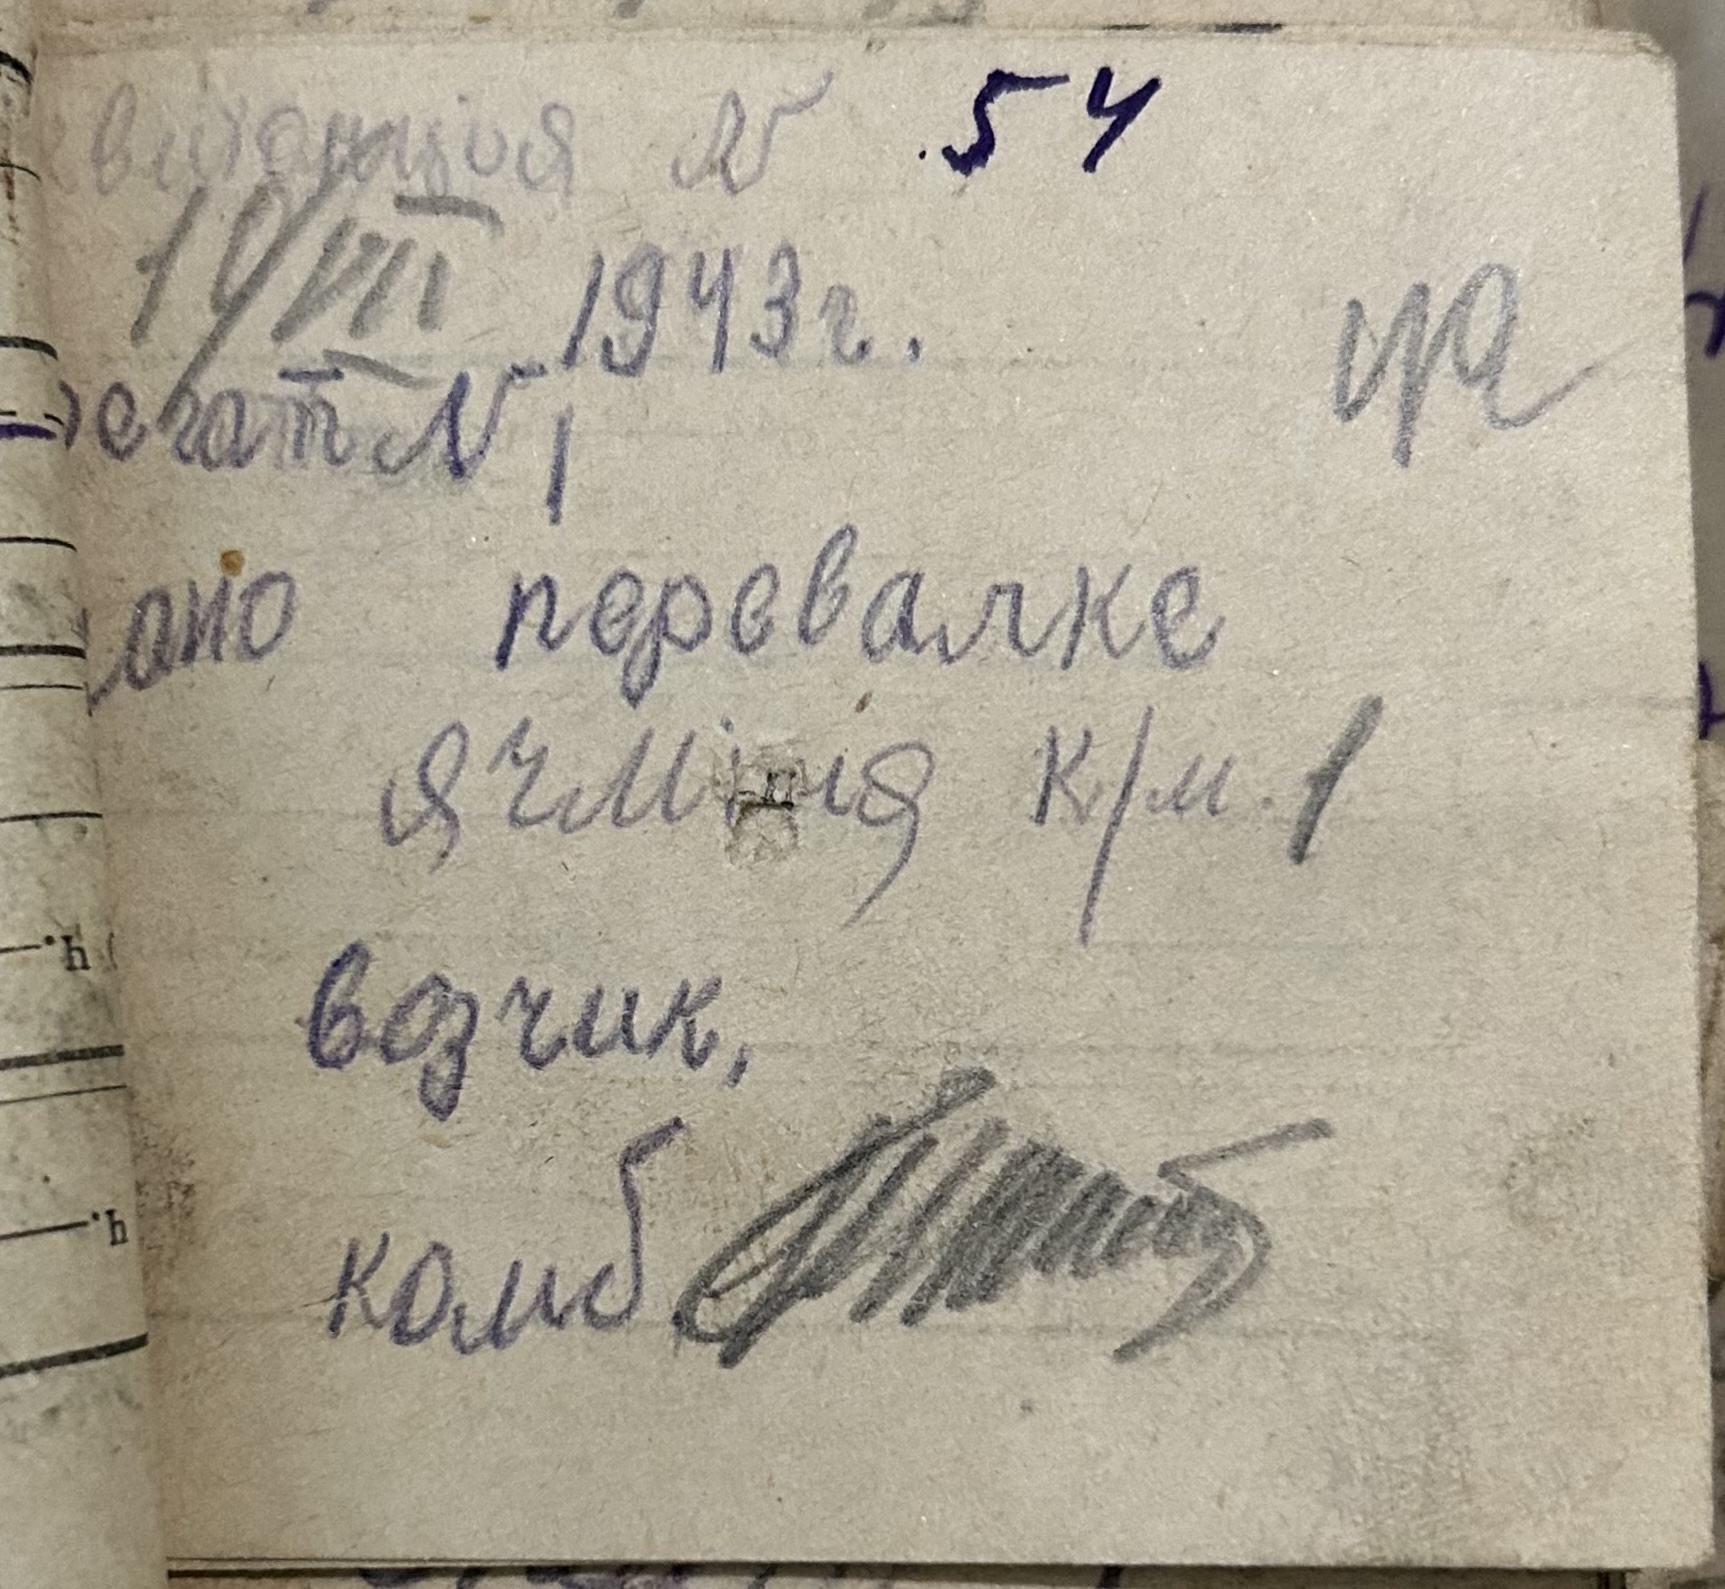 квитанция N 54
19/VII 1943г.
регат N 1
дано перевалке
ячміня к/м. 1
возчик,
комб